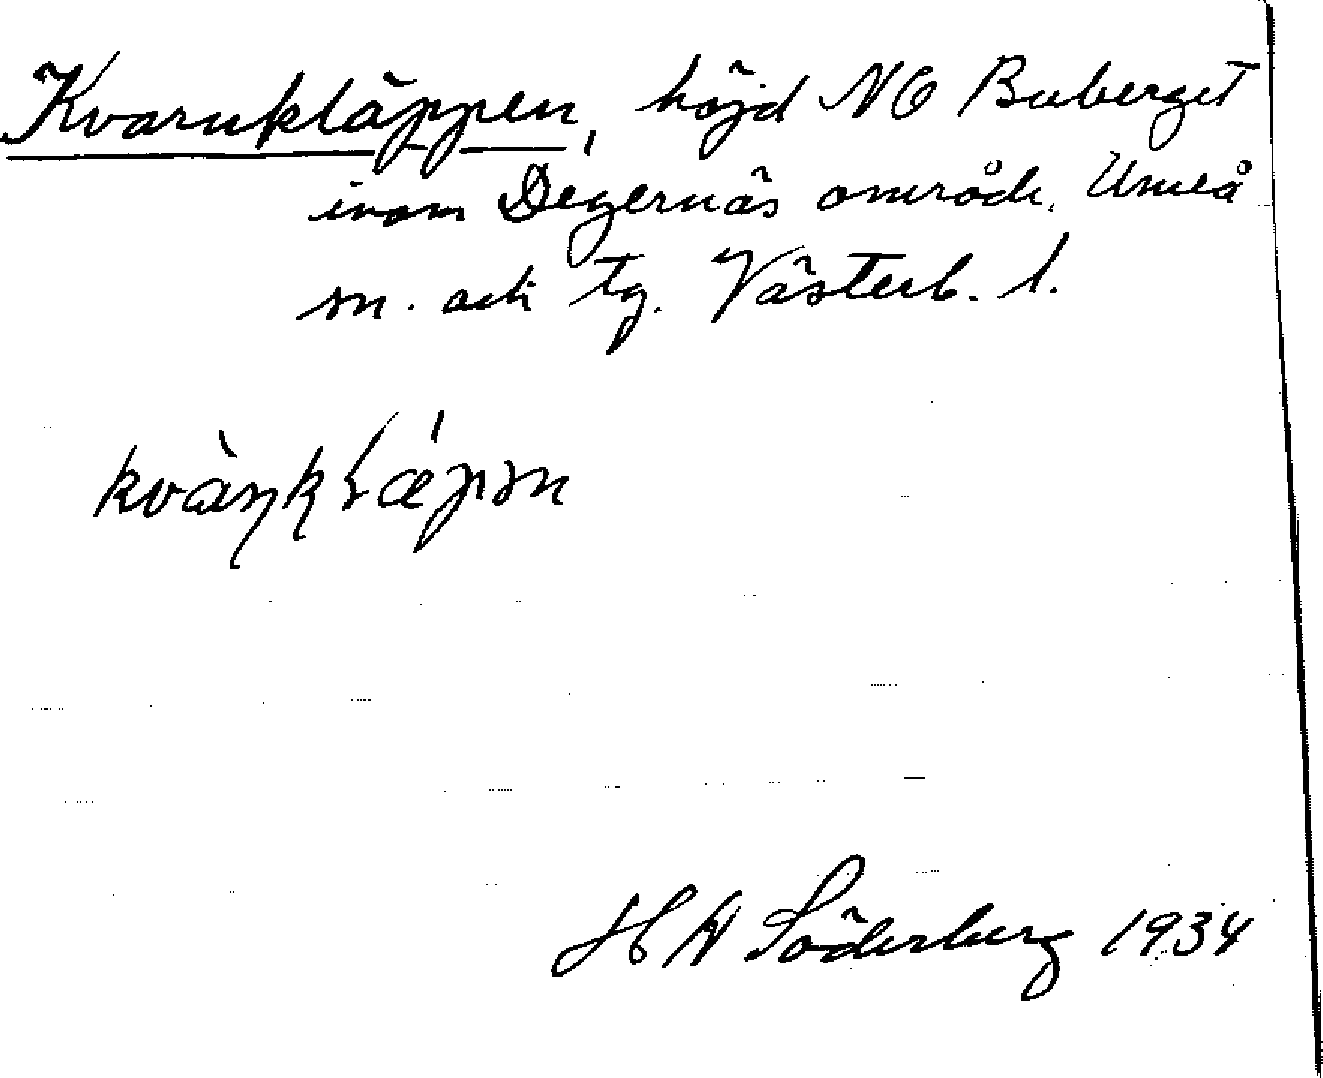 Kvarnkläppen, höjd NO Buberget
inom Degernäs område, Umeå
sn. och tg. Västerb. l.
H W Söderberg 1934